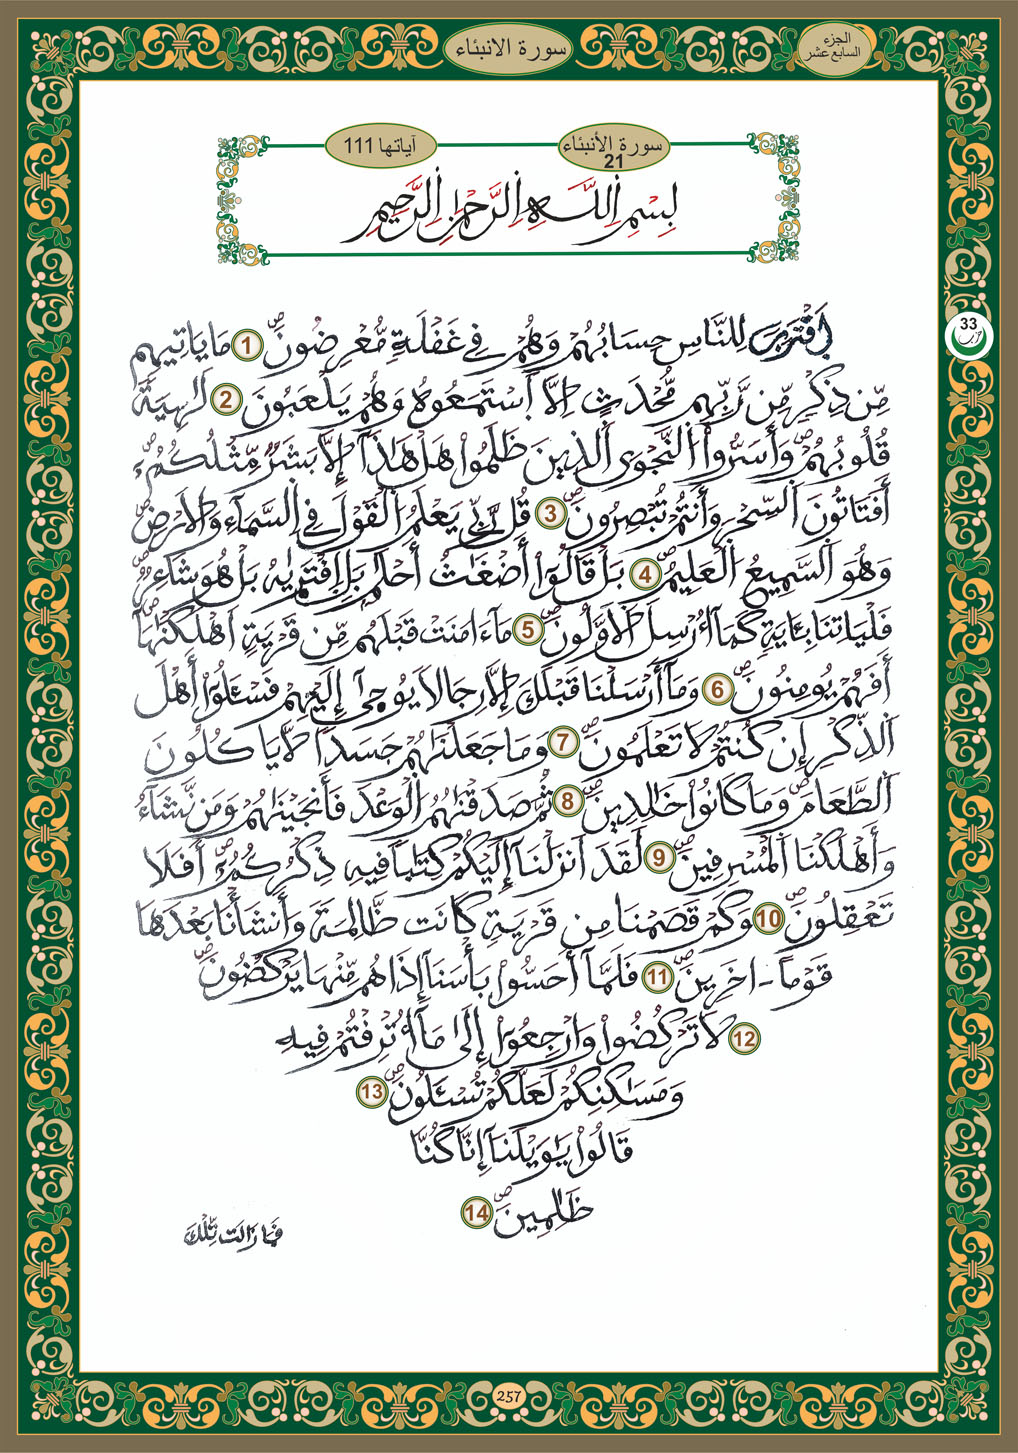 الجزء
السابع عشر
سورة الانبئاء
سورة الأنبئاء
21
آياتها 111
بِسْمِ اِللَّهِ اِلرَّحْمَٰنِ اِلرَّحِيمِ
33
حزب
اَقْتَرَبَ لِلنَّاسِ حِسَابُهُمْ وَهُمْ فِي غَفْلَةٍ مُّعْرِضُونَ 1 مَا يَاتِيهِم
مِّن ذِكْرٍ مِّن رَّبِّهِم مُّحْدَثٍ اِلَّا اَسْتَمَعُوهُ وَهُمْ يَلْعَبُونَ 2 لَاهِيَةً
قُلُوبُهُمْ وَأَسَرُّوا اُ۬لنَّجْوَى اَ۬لذِينَ ظَلَمُوا هَلْ هَٰذَا إِلَّا بَشَرٌ مِّثْلُكُمُ
أَفَتَاتُونَ اَ۬لسِّحْرَ وَأَنتُمْ تُبْصِرُونَ 3 قُل رَّبِّي يَعْلَمُ اُ۬لْقَوْلَ فِي اِ۬لسَّمَآءِ وَالَارْضِ
وَهُوَ اَ۬لسَّمِيعُ اُ۬لْعَلِيمُ 4 بَلْ قَالُوا أَضْغَٰثُ أَحْلَٰمٍ بَلِ اِ۪فْتَر۪يٰهُ بَلْ هُوَ شَاعِرٌ
فَلْيَاتِنَا بِـَٔايَةٍ كَمَآ أُرْسِلَ اَ۬لَاوَّلُونَ 5 مَآ ءَامَنَتْ قَبْلَهُم مِّن قَرْيَةٍ اَهْلَكْنَٰهَآ
أَفَهُمْ يُومِنُونَ 6 وَمَآ أَرْسَلْنَا قَبْلَكَ إِلَّا رِجَالًا يُوحَىٰٓ إِلَيْهِمْ فَسْـَٔلُوا أَهْلَ
اَ۬لذِّكْرِ إِن كُنتُمْ لَا تَعْلَمُونَ 7 وَمَا جَعَلْنَٰهُمْ جَسَدًا لَّا يَاكُلُونَ
اَ۬لطَّعَامَ وَمَا كَانُوا خَٰلِدِينَ 8 ثُمَّ صَدَقْنَٰهُمُ اُ۬لْوَعْدَ فَأَنجَيْنَٰهُمْ وَمَن نَّشَآءُ
وَأَهْلَكْنَا اَ۬لْمُسْرِفِينَ 9 لَقَدَ اَنزَلْنَآ إِلَيْكُمْ كِتَٰبًا فِيهِ ذِكْرُكُمُ أَفَلَا
تَعْقِلُونَ 10 وَكَمْ قَصَمْنَا مِن قَرْيَةٍ كَانَت ظَّالِمَةً وَأَنشَأْنَا بَعْدَهَا
قَوْمًا - اخَرِينَ 11 فَلَمَّآ أَحَسُّوا بَأْسَنَآ إِذَا هُم مِّنْهَا يَرْكُضُونَ
12 لَا تَرْكُضُوا وَارْجِعُوا إِلَىٰ مَآ أُتْرِفْتُمْ فِيهِ
وَمَسَٰكِنِكُمْ لَعَلَّكُمْ تُسْـَٔلُونَ 13
قَالُوا يَٰوَيْلَنَآ إِنَّا كُنَّا
ظَٰلِمِينَ 14
فَمَا زَالَت تِّلْكَ
257